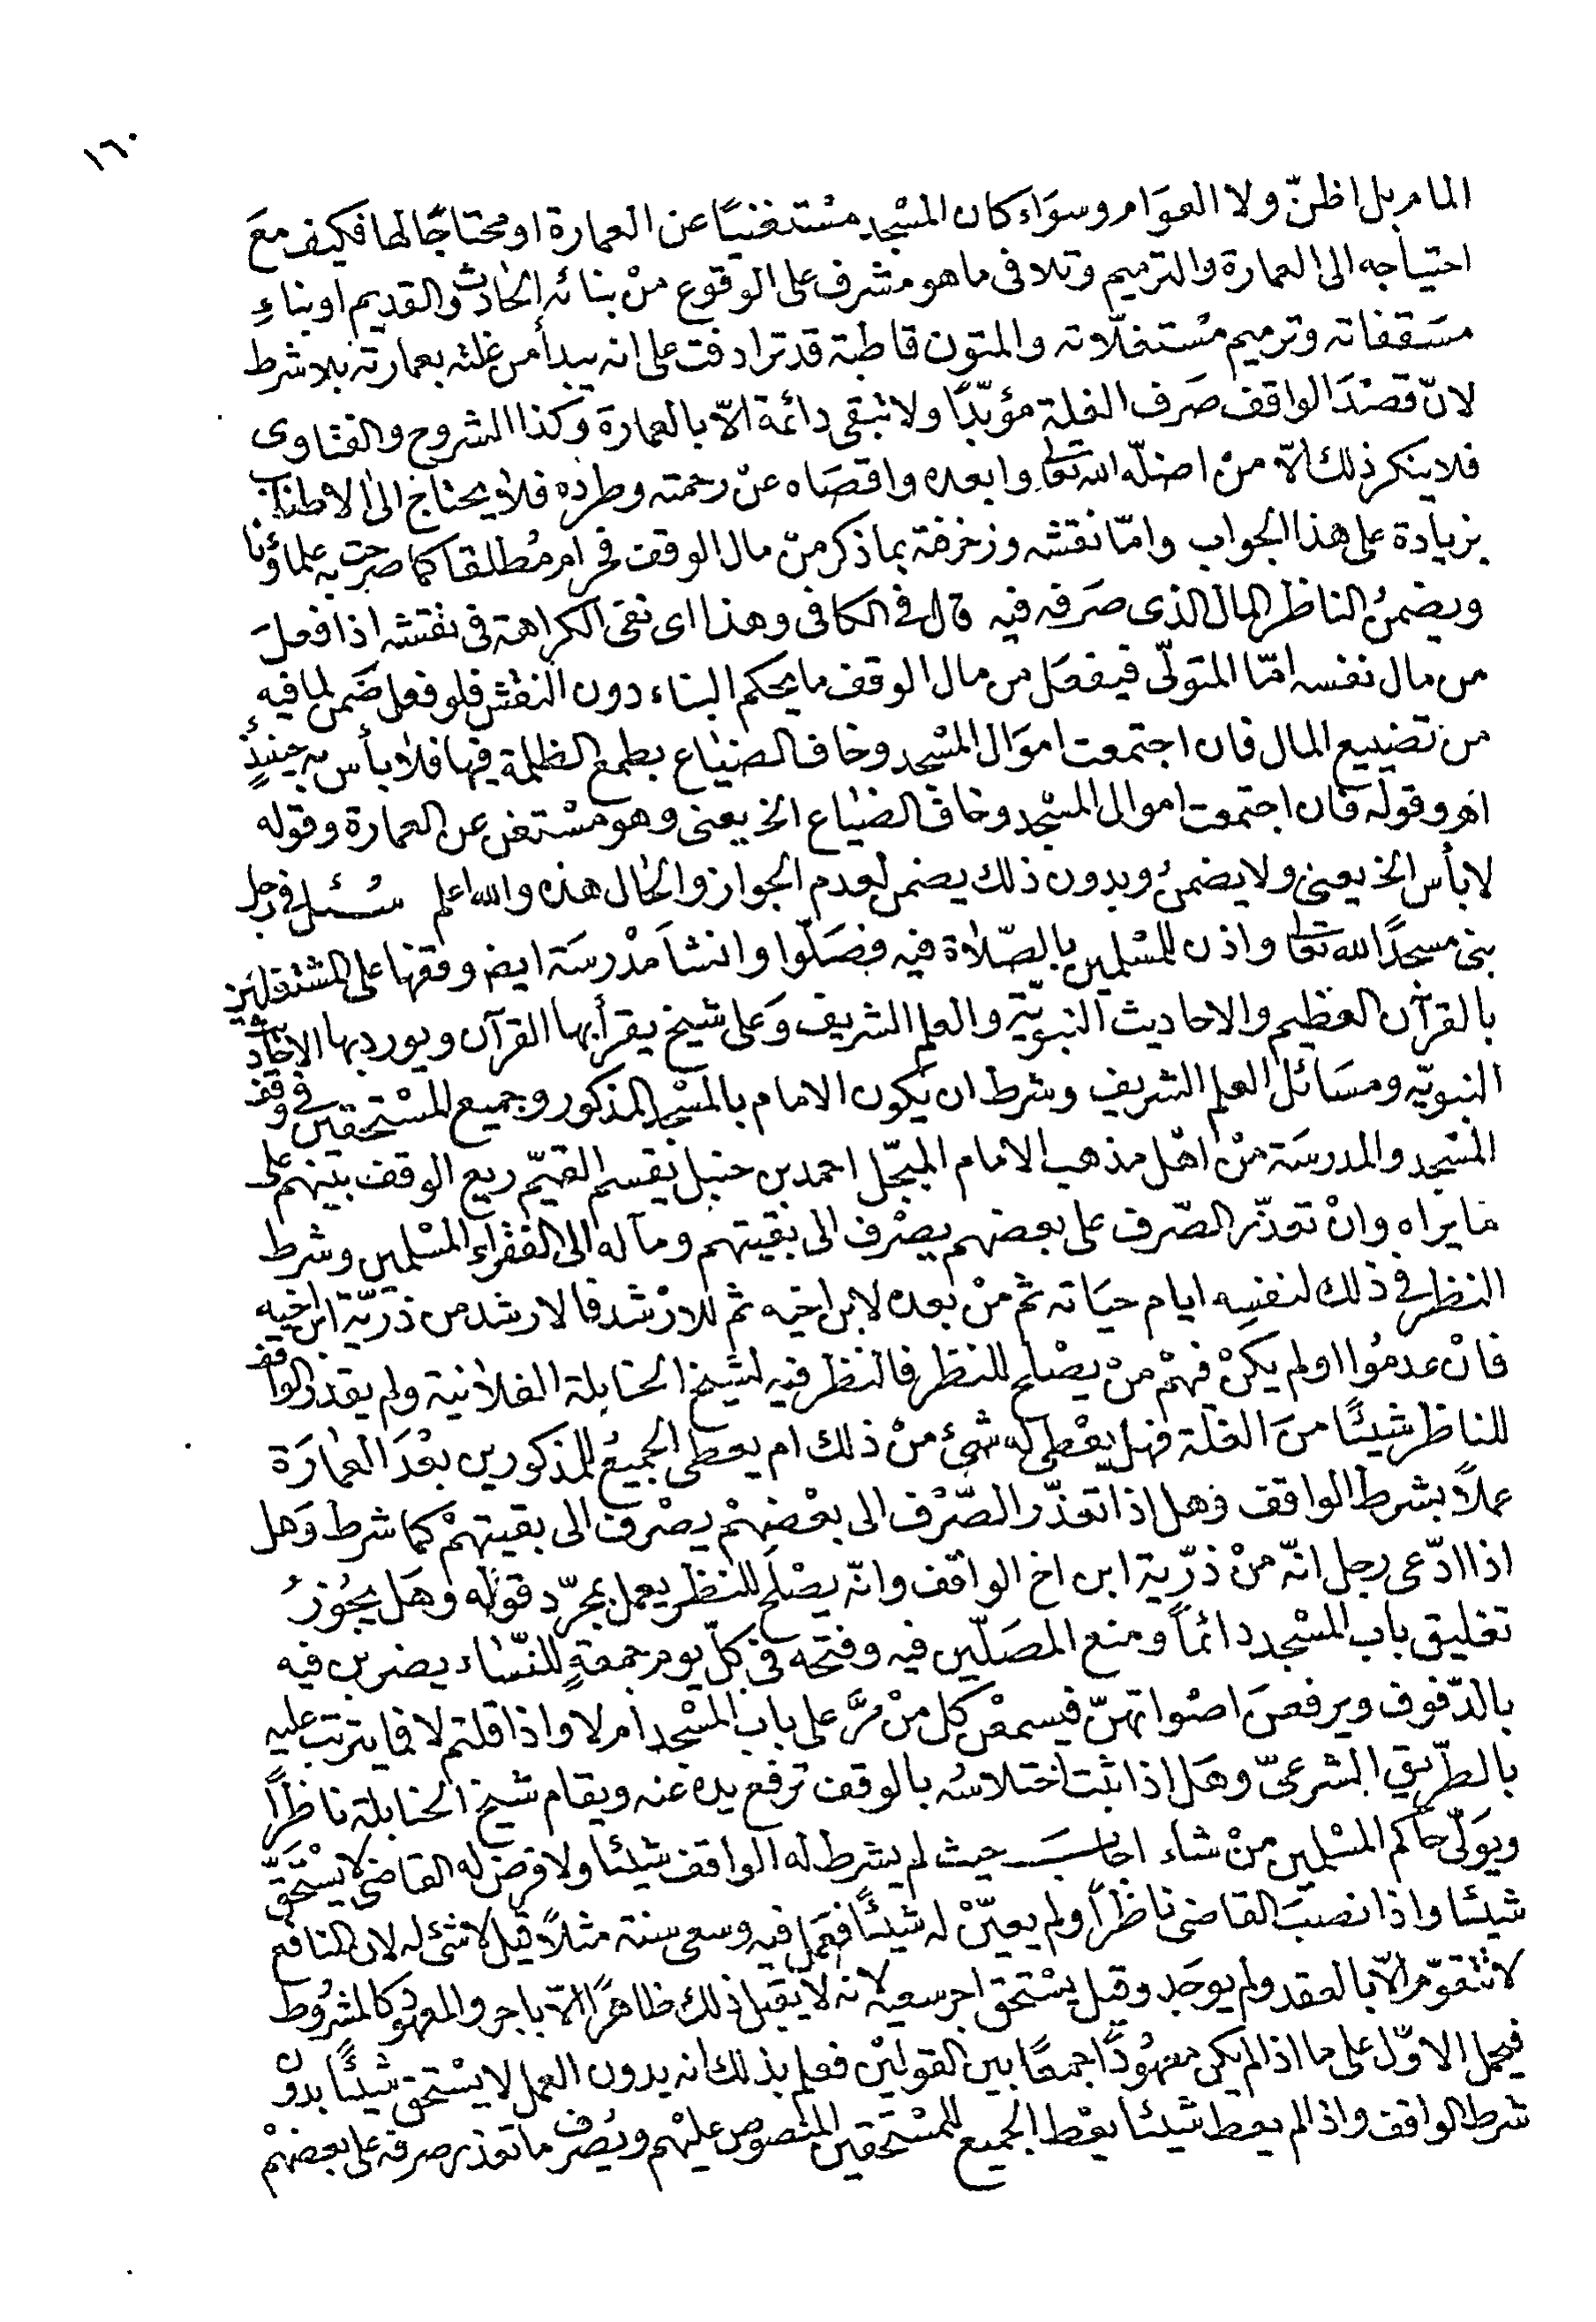 ١٦٠
المام بل اظنّ ولا العوَام وسوَاء كان المسْجد مسْتغنيًا عن العمارة او محتاجًا لها فكيف معَ
احتياجه الى العمارة والترميم وتلافى ما هو مشرف على الوقوع منْ بنائه الحادث والقديم او بناءِ
مسَقفاته وترميم مسْتغلّاته والمتون قاطبة قد ترادفت على انه يبدأ من غلته بعمارته بلا شرط
لانّ قصْدَ الواقف صَرف الغلة مؤبّدًا ولا تبقى دائمة الّا بالعمارة وكذا الشروح والفتاوى
فلا ينكر ذلك الّا منْ اضلّه الله تعالى وابعده واقصَاه عنْ رحمته وطرده فلا يحتاج الى الاطناب
بزيادة على هذا الجواب وامّا نقشه وزخرفة بما ذكر منْ مال الوقف فحرام مُطلقا كما صرحت به علماؤنا
ويضمنُ الناظر المال الذى صَرفه فيه قال فى الكافى وهذا اى نفى الكراهة فى نقشه اذا فعلَ
من مال نفسه امّا المتولّى فيفعَل من مال الوقف ما يحكم البناء دون النقش فلو فعل ضَمن لما فيه
من تضييع المال فان اجتمعت اموَال المسْجد وخاف الضيَاع بطمع الظلمة فيها فلا بأس به حينئذٍ
اهـ وقوله فان اجتمعت اموال المسْجد وخاف الضيَاع الخ يعنى وهو مسْتغن عن العمارة وقوله
لا بأس الخ يعنى ولا يضمنُ وبدون ذلك يضمن لعدم الجواز والحال هذه والله اعلم سُئل فى رجل
بنى مسجدًا لله تعالى واذن للمسْلمين بالصّلاة فيه فصَلّوا وانشأ مدْرسَة ايضـ وقفها على المشتغلين
بالقرآن العظيم والاحاديث النبويّة والعلم الشريف وَعلى شيخ يقرأ بها القرآن ويورد بها الاحاديث
النبويّه ومسَائل العلم الشريف وشرط ان يكون الامام بالمسْجد المذكور وجميع المسْتحقين فى وقف
المسْجد والمدرسَة منْ اهْل مذهب الامام المبجّل احمد بن حنبل يقسم القيّم ريع الوقف بينهم على
ما يراه وانْ تعذّر الصّرف على بعضهم يصْرف الى بقيتهم ومآله الى الفقراء المسْلمين وشرط
النظر فى ذلك لنفسه ايام حيَاته ثم منْ بعده لابن اخيه ثم للارْشد فالارشد من ذريّة ابن اخيه
فانْ عدمُوا او لم يكنْ فيهمْ منْ يصْلح للنظر فالنظر فيه لشيخ الحنابلة الفلانية ولم يقدر الواقف
للناظر شيئًا منَ الغلّة فهل يعْطى له شئ منْ ذلك ام يعطى الجميعُ للمذكورين بعْدَ العمارَة
عملاً بشرط الواقف وهل اذا تعذّر الصّرْف الى بعْضهمْ يصْرف الى بقيتهمْ كما شرط وَهل
اذا ادّعى رجل انّه منْ ذرّية ابن اخ الواقف وانّه يصْلح للنظر يعمل بمجرّد قوْله وهَل يجُوزُ
تغليق باب المسْجد دائماً ومنع المصَلّين فيه وفتحه فى كلّ يوم جمعةٍ للنّسَاء يضربن فيه
بالدّفوف ويرفعنَ اصْواتهنّ فيسمعْن كل منْ مرَّ على باب المسْجد أم لا واذا قلتم لا فما يترتب عليه
بالطّريق الشرعىّ وهَل اذا ثبت اختلاسُه بالوقف ترفع يده عنه ويقام شيخ الحنابلة ناظراً
ويَولّى حاكم المسْلمين منْ شاء اجابَ حيث لم يشرط له الواقف شيئا ولا فرض له القاضى لا يسْتحَقّ
شيئا واذا نصبَ القاضى ناظراً ولم يعيّنْ له شيئًا فعمل فيه وسعى سنة مثلاً قيل لا شئ له لان المنافع
لا تتقوّم الّا بالعقد ولم يوجَد وقيل يسْتحق اجر سعيه لانه لا يقبل ذلك ظاهرًا الّا باجر والمعهود كالمشرُوط
فيحمل الاوّل على ما اذا لم يكن معهُودًا جمعًا بين القولينْ فعلم بذلك انه بدون العمل لا يسْتحق شيئًا بدون
شرط الواقف واذا لم يعط شيئا يعْط الجميع للمسْتحقين المنصوص عليْهم ويصْرف ما تعذر صرفه على بعضهمْ